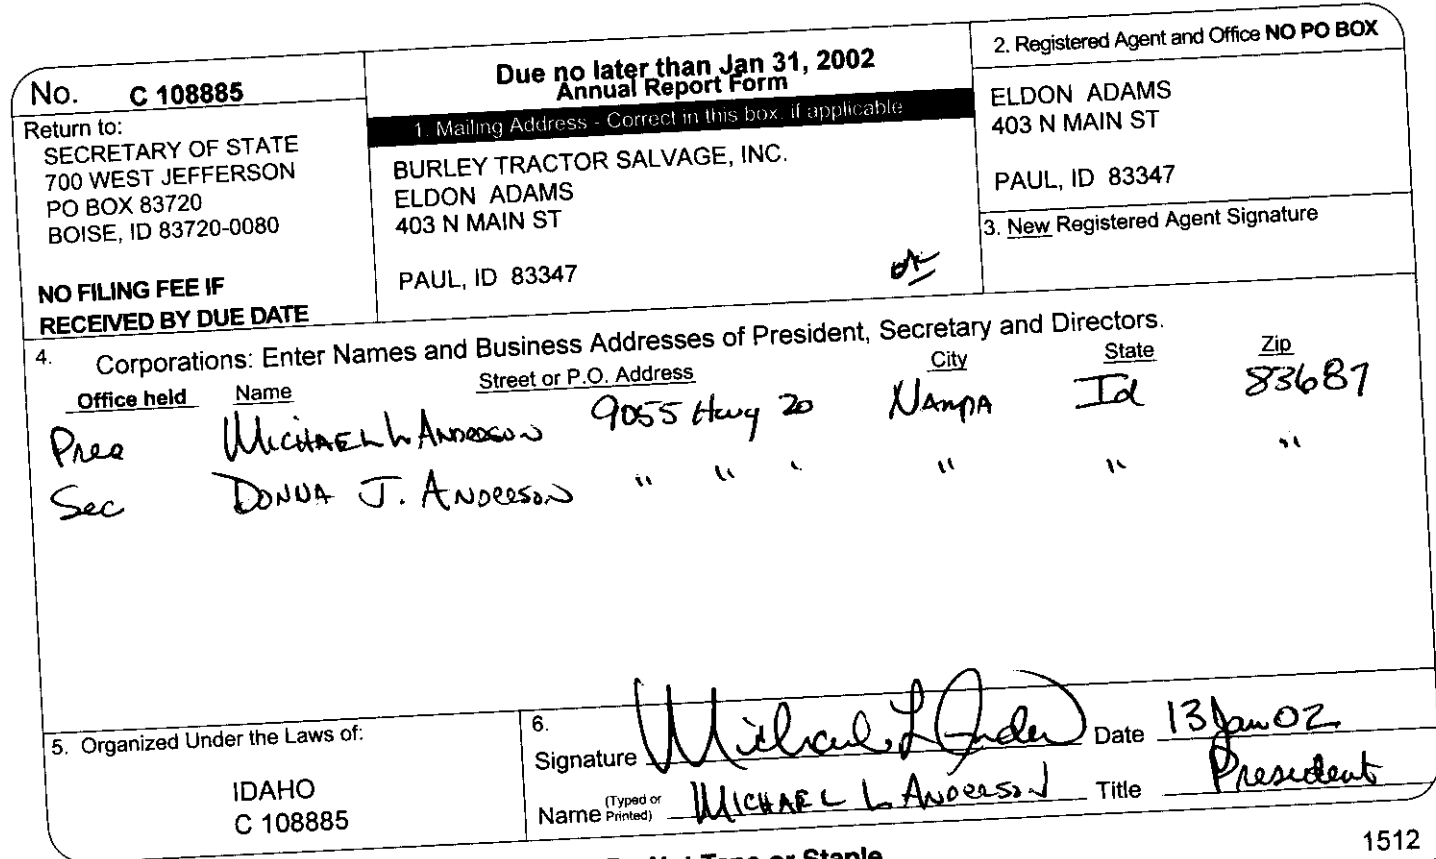 No. C 108885
Return to:
SECRETARY OF STATE
700 WEST JEFFERSON
PO BOX 83720
BOISE, ID 83720-0080
NO FILING FEE IF
RECEIVED BY DUE DATE
Due no later than Jan 31, 2002
Annual Report Form
1. Mailing Address - Correct in this box, if applicable
BURLEY TRACTOR SALVAGE, INC.
ELDON ADAMS
403 N MAIN ST
PAUL, ID 83347
2. Registered Agent and Office NO PO BOX
ELDON ADAMS
403 N MAIN ST
PAUL, ID 83347
3. New Registered Agent Signature
4. Corporations: Enter Names and Business Addresses of President, Secretary and Directors.
Office held Name Street or P.O. Address City State Zip
Pres MICHAEL L ANDERSON 9055 Hwy 20 NAMPA Id 83687
Sec DONNA J. ANDERSON " " " " " "
5. Organized Under the Laws of:
IDAHO
C 108885
6.
Signature Michael L Anderson Date 13 Jan 02
Name (Typed or Printed) MICHAEL L ANDERSON Title President
Do Not Tape or Staple
1512